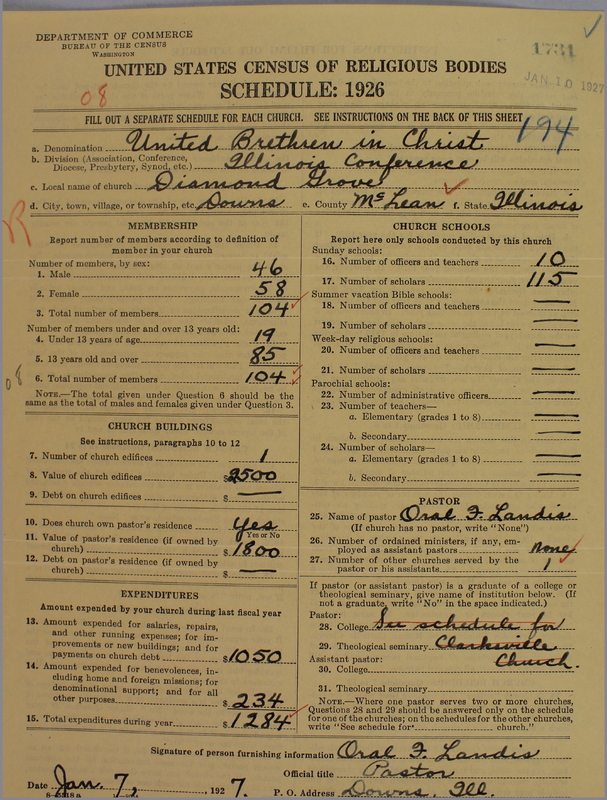 DEPARTMENT OF COMMERCE
BUREAU OF THE CENSUS
WASHINGTON
1731
JAN 10 1927
UNITED STATES CENSUS OF RELIGIOUS BODIES
SCHEDULE: 1926
08
FILL OUT A SEPARATE SCHEDULE FOR EACH CHURCH. SEE INSTRUCTIONS ON THE BACK OF THIS SHEET
194
a. Denomination United Brethren in Christ
b. Division (Association, Conference, Diocese, Presbytery, Synod, etc.) Illinois Conference
c. Local name of church Diamond Grove
d. City, town, village, or township, etc. Downs e. County McLean f. State Illinois
R
MEMBERSHIP
Report number of members according to definition of
member in your church
Number of members, by sex:
1. Male 46
2. Female 58
3. Total number of members 104
Number of members under and over 13 years old:
4. Under 13 years of age 19
5. 13 years old and over 85
08
6. Total number of members 104
NOTE.—The total given under Question 6 should be
same as the total of males and females given under Question 3.
CHURCH BUILDINGS
See instructions, paragraphs 10 to 12
7. Number of church edifices 1
8. Value of church edifices $2500
9. Debt on church edifices $ —
10. Does church own pastor's residence Yes
Yes or No
11. Value of pastor's residence (if owned by
church) $1800
12. Debt on pastor's residence (if owned by
church) $ —
EXPENDITURES
Amount expended by your church during last fiscal year
13. Amount expended for salaries, repairs,
and other running expenses; for im-
provements or new buildings; and for
payments on church debt $1050
14. Amount expended for benevolences, in-
cluding home and foreign missions; for
denominational support; and for all
other purposes $ 234
15. Total expenditures during year $1284
CHURCH SCHOOLS
Report here only schools conducted by this church
Sunday schools:
16. Number of officers and teachers 10
17. Number of scholars 115
Summer vacation Bible schools:
18. Number of officers and teachers —
19. Number of scholars —
Week-day religious schools:
20. Number of officers and teachers —
21. Number of scholars —
Parochial schools:
22. Number of administrative officers —
23. Number of teachers—
a. Elementary (grades 1 to 8) —
b. Secondary —
24. Number of scholars—
a. Elementary (grades 1 to 8) —
b. Secondary —
PASTOR
25. Name of pastor Oral F. Landis
(If church has no pastor, write "None")
26. Number of ordained ministers, if any, em-
ployed as assistant pastors none
27. Number of other churches served by the
pastor or his assistants 1
If pastor (or assistant pastor) is a graduate of a college or
theological seminary, give name of institution below. (If
not a graduate, write "No" in the space indicated.)
Pastor:
28. College See schedule for
29. Theological seminary Clarksville
Assistant pastor: Church.
30. College
31. Theological seminary
NOTE.—Where one pastor serves two or more churches,
Questions 28 and 29 should be answered only on the schedule
for one of the churches; on the schedules for the other churches,
write "See schedule for church."
Signature of person furnishing information Oral F. Landis
Official title Pastor
Date Jan. 7, , 192 7. P. O. Address Downs, Ill.